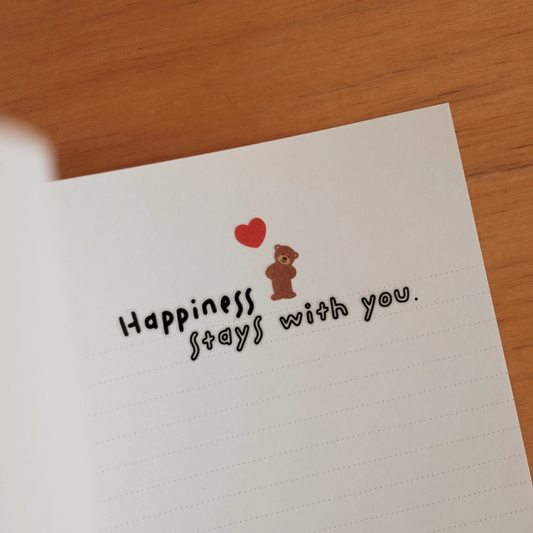 Happiness
stays with you.